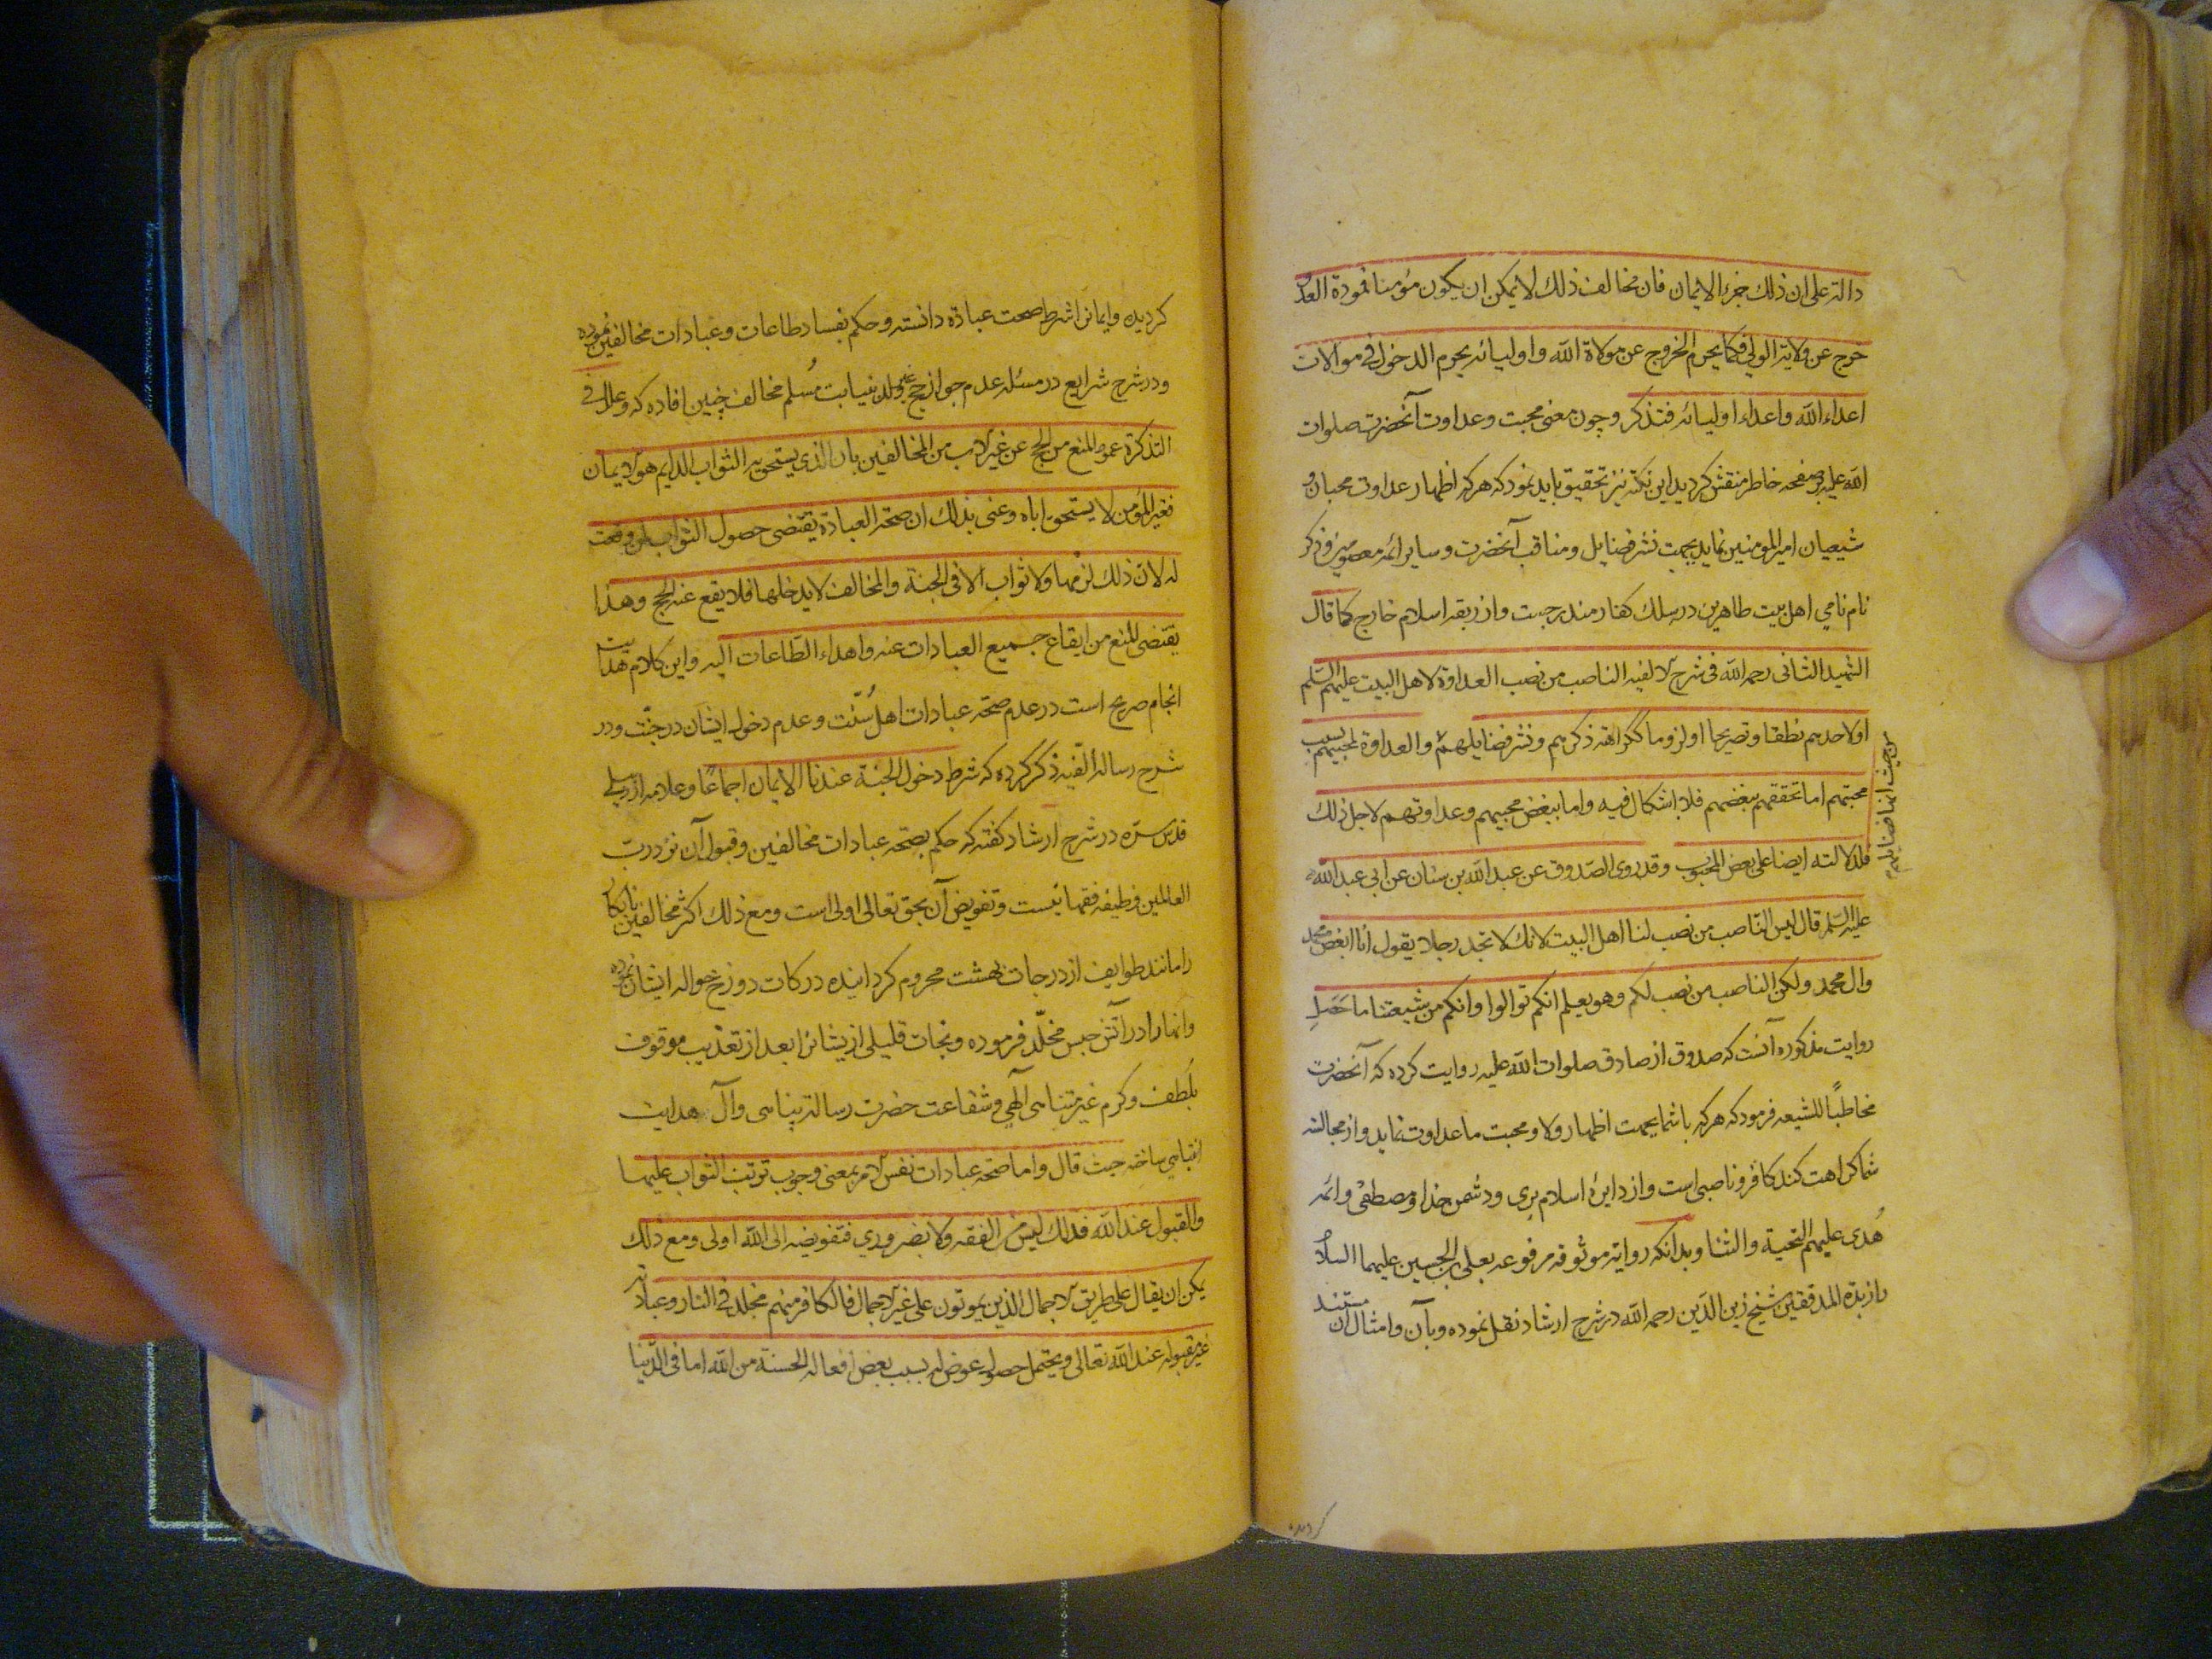 دالة علی ان ذلك جزء الایمان فان مخالف ذلك لا یمکن ان یکون مؤمنا فمودة العدو
خرج عن ولایة الولي فکما یحرم الخروج عن موالاة الله واولیائه یحرم الدخول في موالات
اعداء الله واعداء اولیائه فتذکر وچون معنی محبت وعداوت آنحضرت صلوات
الله علیه بر صفحه خاطر منقش کردید این نکته نیز تحقیق باید نمود که هرکه اظهار عداوت محبان و
شیعیان امیرالمومنین نماید بجهت نشر فضایل ومناقب آنحضرت وسایر ائمه معصومین وذکر
نام نامي اهل بیت طاهرین در سلك کفار مندرجست واز ربقه اسلام خارج کما قال
الشهید الثانی رحمه الله في شرح الالفیه الناصب من نصب العداوة لاهل البیت علیهم السلم
او لاحدهم نطقا وتصریحا او لزوما ککراهة ذکرهم ونشر فضایلهم والعداوة لمحبیهم بسبب
محبتهم اما تحققهم ببغضهم فلا اشکال فیه واما ببغض محبیهم وعداوتهم لاجل ذلك
فلدلالته ایضا علی بعض المحبوب وقد روی الصدوق عن عبد الله بن سنان عن ابی عبد الله
علیه السلم قال لیس الناصب من نصب لنا اهل البیت لانك لا تجد رجلا یقول انا ابغض محمد
وال محمد ولکن الناصب من نصب لکم وهو یعلم انکم توالوا وانکم من شیعتنا ما حصل
روایت مذکوره آنست که صدوق از صادق صلوات الله علیه روایت کرده که آنحضرت
مخاطباً للشیعه فرمود که هرکه با شما بجهت اظهار ولا ومحبت ما عداوت نماید واز مجالسه
شما کراهت کند کافر وناصبی است واز دایرۀ اسلام بری ودشمن خدا ومصطفی وائمه
هُدی علیهم التحیة والثنا وبدانکه روایة موثوقه مرفوعه بعلی بن الحسین علیهما السلام
را زبدة المدققین شیخ زین الدین رحمه الله در شرح ارشاد نقل نموده وبآن وامثال آن مستند
کردیده
کردیده وایمان را شرط صحت عبادة دانسته وحکم بفساد طاعات وعبادات مخالفین نموده
ودر شرح شرایع در مسئله عدم جواز حج غیر ولد نیابت مُسلم مخالف چنین افاده که وعلل في
التذکرة عموم المنع من الحج عن غیر الاب من المخالفین بان الذي یستحق به الثواب الدایم هو الایمان
فغیر المؤمن لا یستحق اباه وعنی بذلك ان صحة العبادة یقتضی حصول الثواب لمن وقعت
له لان ذلك لازمها ولا ثواب الا في الجنة والمخالف لا یدخلها فلا یقع عنه الحج وهذا
یقتضی المنع من ایقاع جمیع العبادات عنه واهداء الطاعات الیه واین کلام هدایت
انجام صریح است در عدم صحة عبادات اهل سُنّت وعدم دخول ایشان در جنّت ودر
شرح رسالۀ الفیه ذکر کرده که شرط دخول الجنة عندنا الایمان اجماعًا وعلامه اردبیلی
قدس سرّه در شرح ارشاد کفته که حکم بصحة عبادات مخالفین وقبول آن نزد رب
العالمین وظیفه فقها نیست وتفویض آن بحق تعالی اولی است ومع ذلك اکثر مخالفین ناپکار
را مانند طوایف از درجات بهشت محروم کردانیده درکات دوزخ حواله ایشان نموده
وانها را در آتش حبس مخلّد فرموده ونجات قلیلی از یشانرا بعد از تعذیب موقوف
بلُطف وکرم غیر متناهی آلهي وشفاعت حضرت رسالة پناهی وآل هدایت
انتباهي ساخته حیث قال واما صحة عبادات نفس الامر بمعنی وجوب ترتیب الثواب علیها
والقبول عند الله فذلك لیس من الفقه ولا بضروري فتفویضه الی الله اولی ومع ذلك
یمکن ان یقال علی طریق الاجمال الذین یموتون علی غیر الاجمال فالکافر منهم مخلد في النار وعباداته
غیر مقبولة عند الله تعالی ویحتمل حصول عوض له بسبب بعض افعاله الحسنة من الله اما في الدنیا